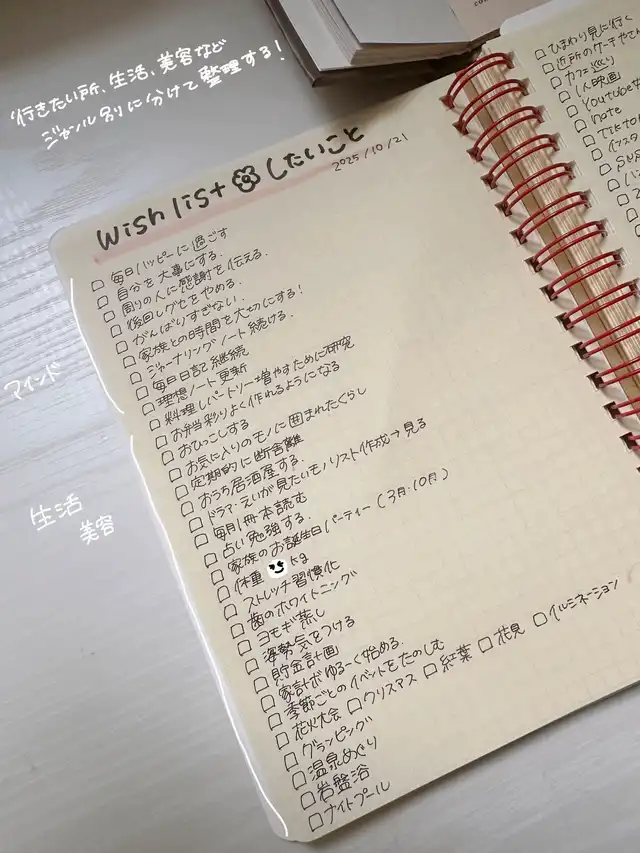 行きたい所、生活、美容など
ジャンル別に分けて整理する!
Wish list したいこと
2025/10/21
□ 毎日ハッピーに過ごす
□ 自分を大事にする.
□ 周りの人に感謝を伝える.
□ 後回しグセをやめる.
□ がんばりすぎない.
□ 家族との時間を大切にする!
□ ジャーナリングノート続ける.
□ 毎日日記継続
□ 理想ノート更新
□ 料理レパートリー増やすために研究
□ お弁当彩りよく作れるようになる
□ おひっこしする
□ お気に入りのモノに囲まれたくらし
□ 定期的に断舎離
□ おうち居酒屋する.
□ ドラマ・えいが見たいモノリスト作成→見る
□ 毎月1冊本読む
□ 占い勉強する.
□ 家族のお誕生日パーティー(3月・10月)
□ 体重 kg
□ ストレッチ習慣化
□ 歯のホワイトニング
□ ヨモギ蒸し
□ 姿勢気をつける
□ 貯金計画
□ 家計ボゆる〜く始める.
□ 季節ごとのイベントをたのしむ
□ 花火大会 □ クリスマス □ 紅葉 □ 花見 □ イルミネーション
□ グランピング
□ 温泉めぐり
□ 岩盤浴
□ ナイトプール
マインド
生活
美容
□ ひまわり見に行く
□ 近所のケーキやさん
□ カフェ巡り
□ 1人映画
□ Youtube
□ note
□ Tiktok
□ インスタ